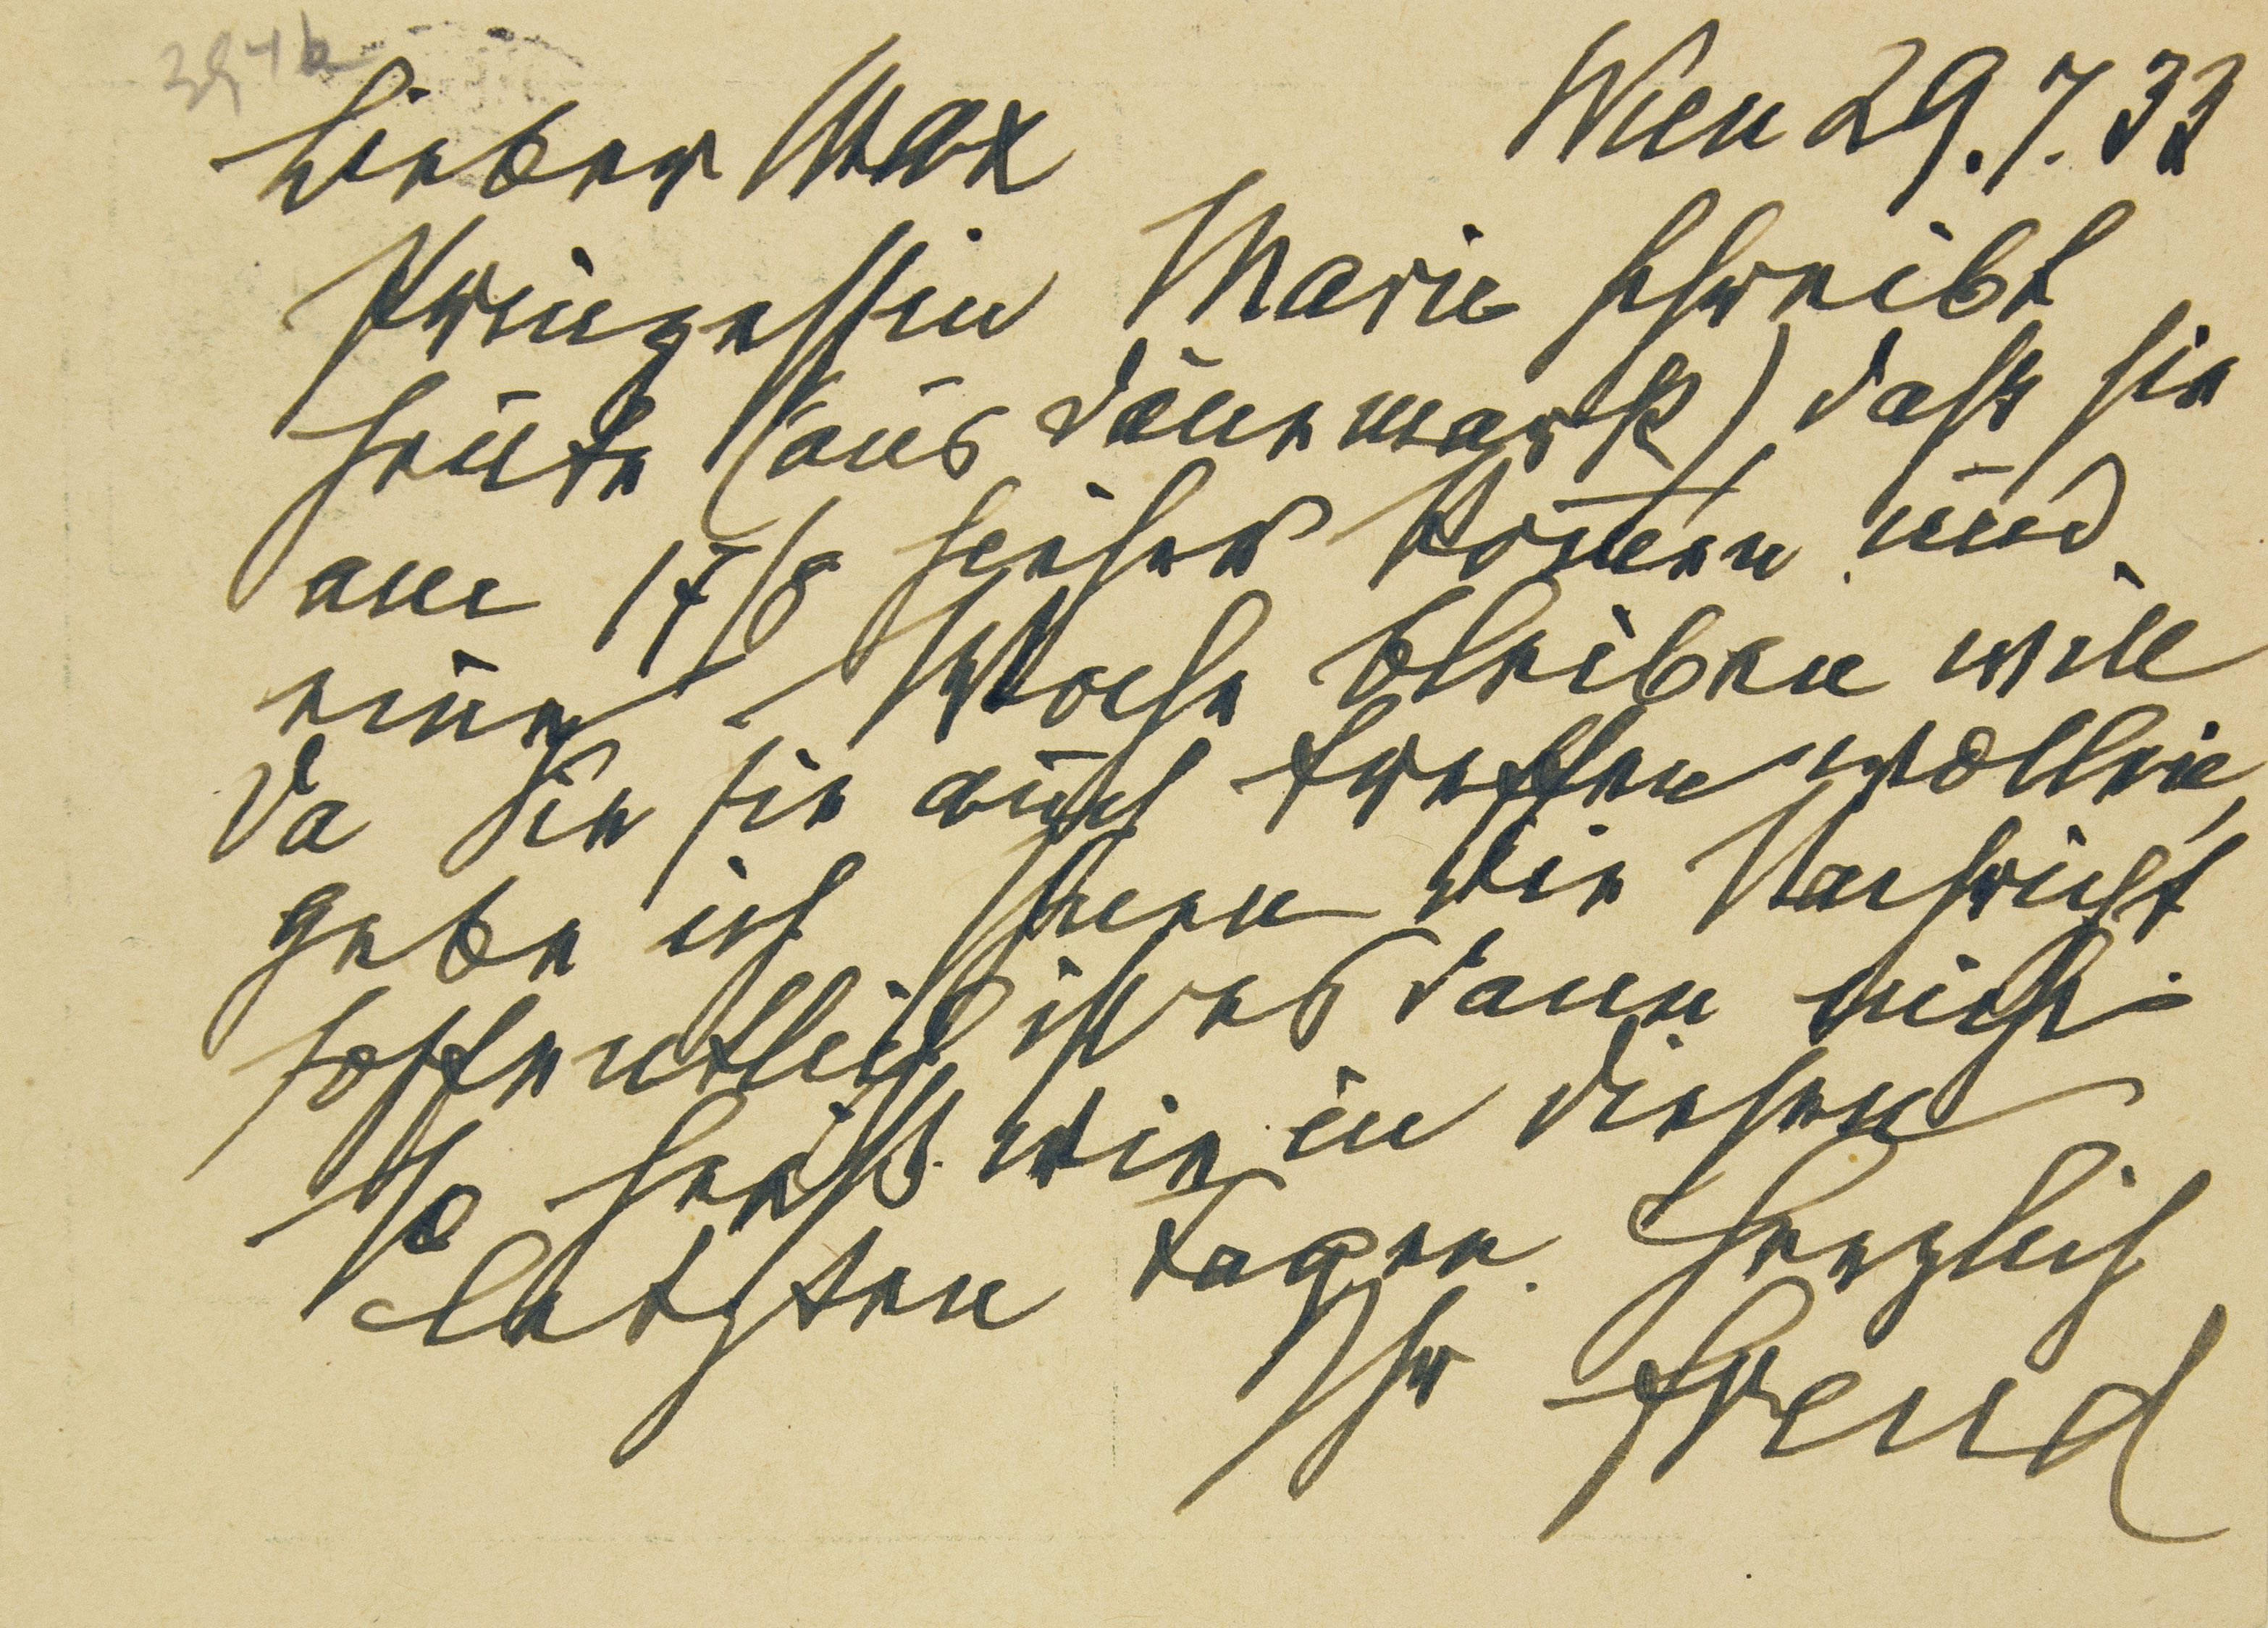 394 b
Wien 29.7.33
Lieber Max
Prinzessin Marie schreibt
heute (aus Dänemark) daß sie
am 17/8 hieher kom̄en und
eine Woche bleiben will
Da Sie sie auch treffen wollen,
gebe ich Ihnen die Nachricht
Hoffentlich ist es dann nicht
so heiß wie in diesen
letzten Tagen. Herzlich
Ihr Freud